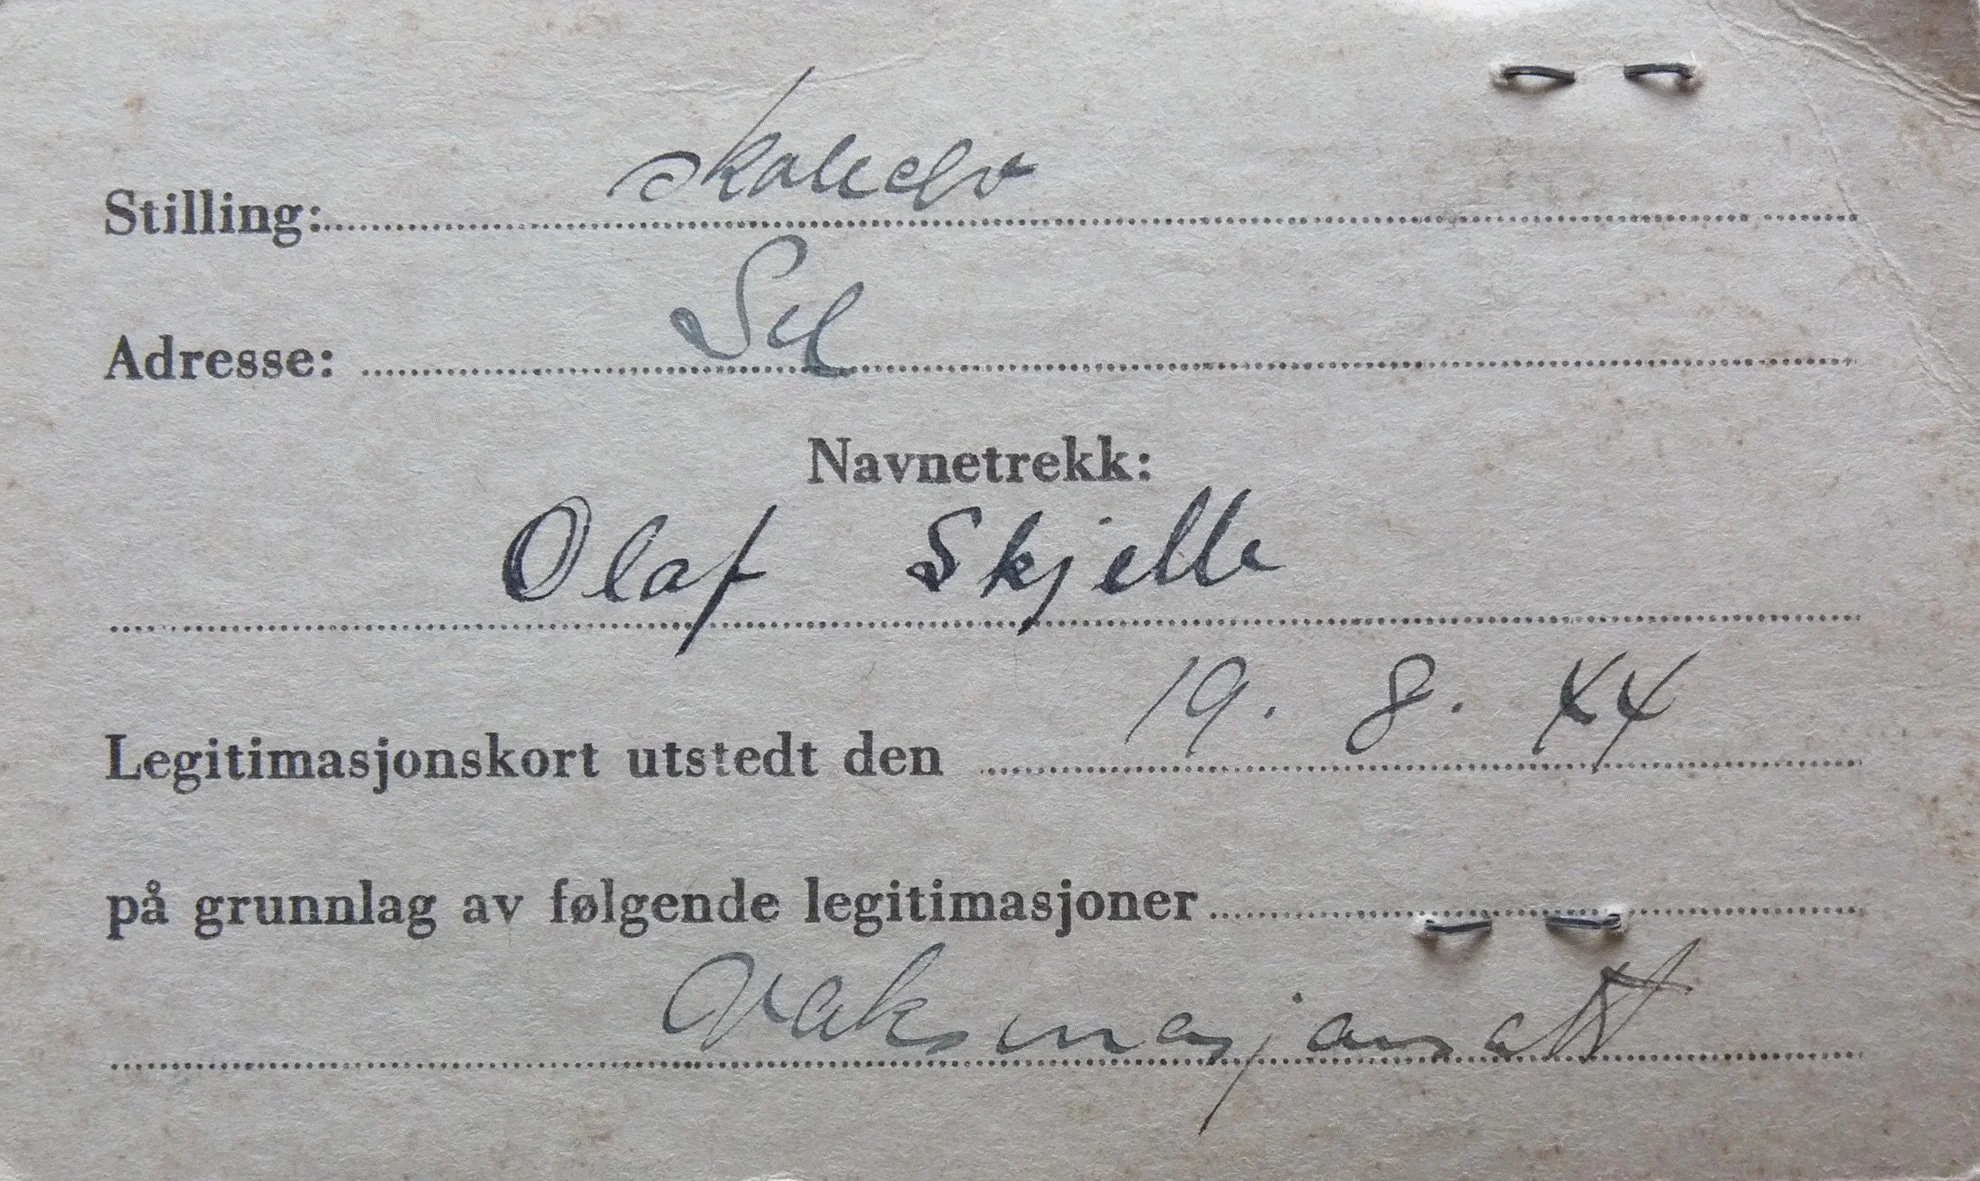 Stilling: skoleelev
Adresse: Sel
Navnetrekk:
Olaf Skjelle
Legitimasjonskort utstedt den 19. 8. 44
på grunnlag av følgende legitimasjoner
Vaksinasjonsatt